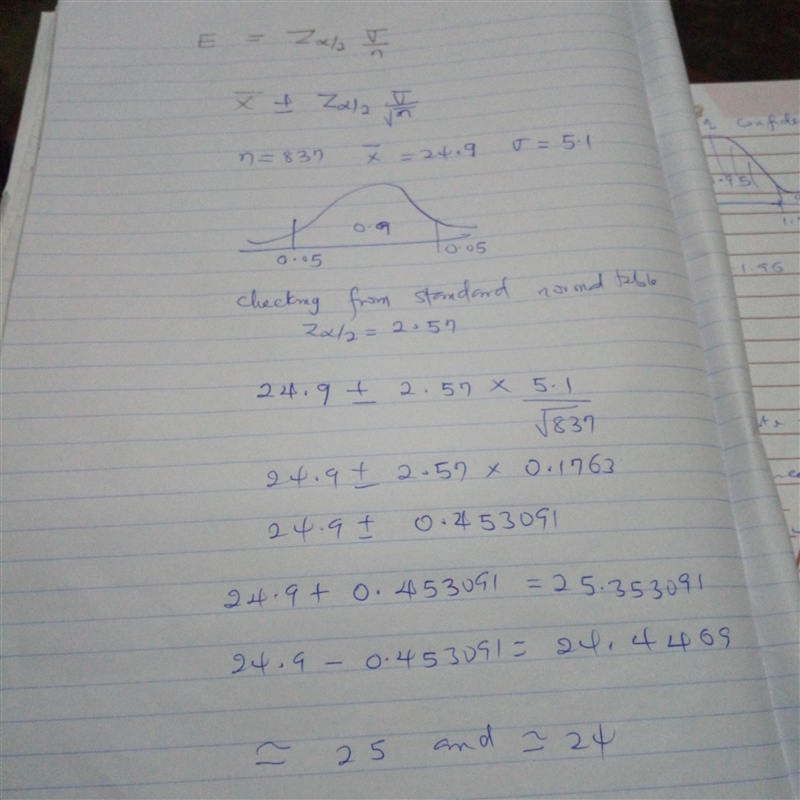 E = Zα/2 σ/n
x̄ ± Zα/2 σ/√n
n = 837 x̄ = 24.9 σ = 5.1
0.9
0.05 0.05
checking from standard normal table
Zα/2 = 2.57
24.9 ± 2.57 × 5.1/√837
24.9 ± 2.57 × 0.1763
24.9 ± 0.453091
24.9 + 0.453091 = 25.353091
24.9 − 0.453091 = 24.4469
≃ 25 and ≃ 24
1.96